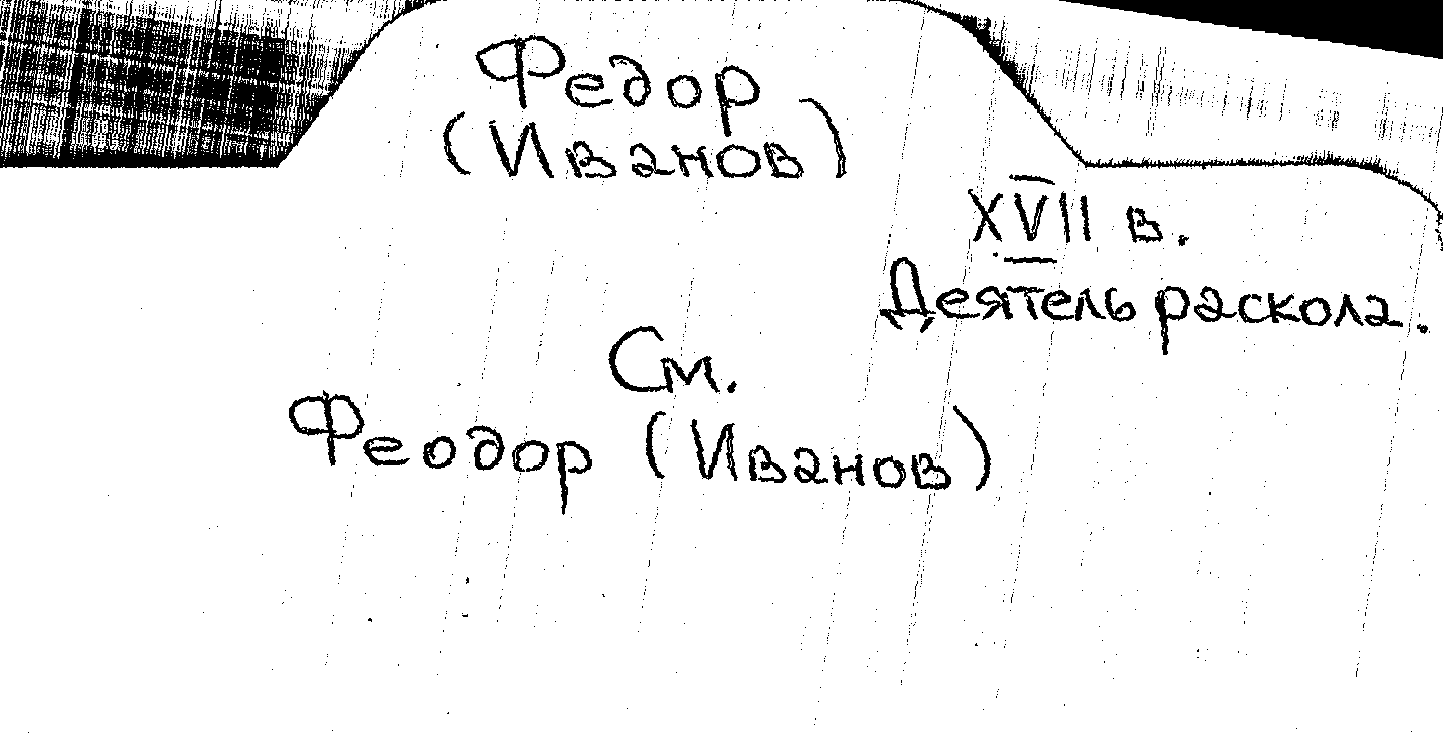 Федор
(Иванов)
XVII в.
Деятель раскола.
См.
Феодор (Иванов)